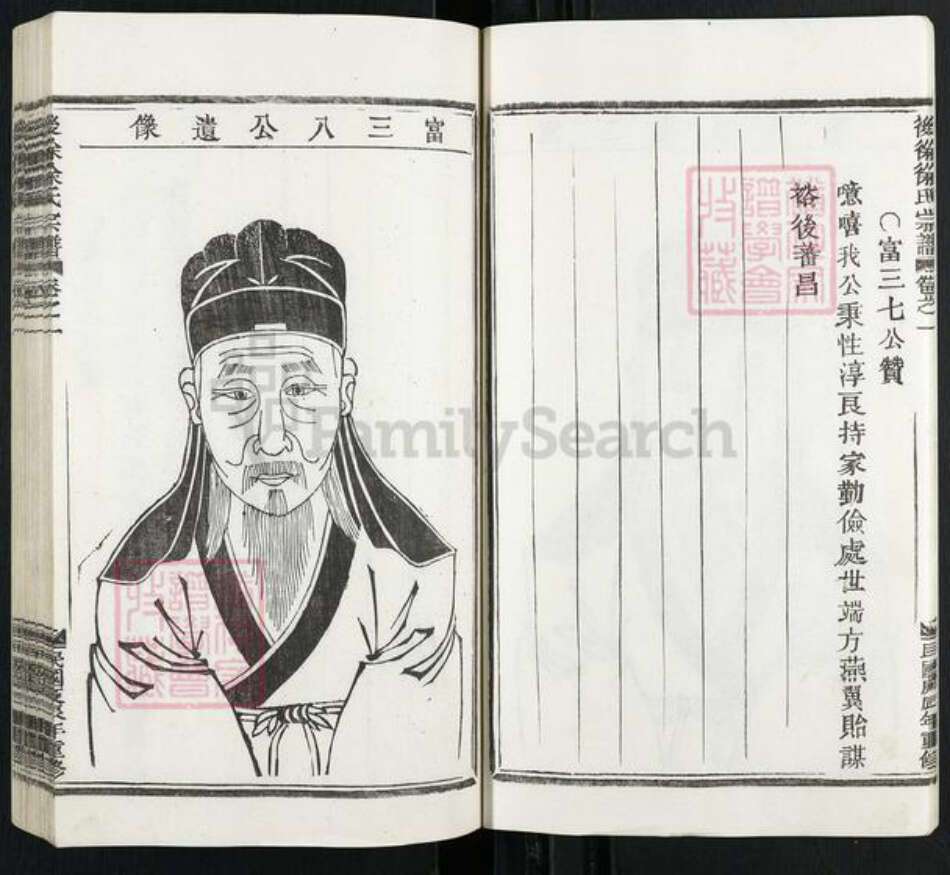 富三七公贊
噫嘻我公秉性淳良持家勤儉處世端方燕翼貽謀
裕後蕃昌
富三八公遺像
FamilySearch